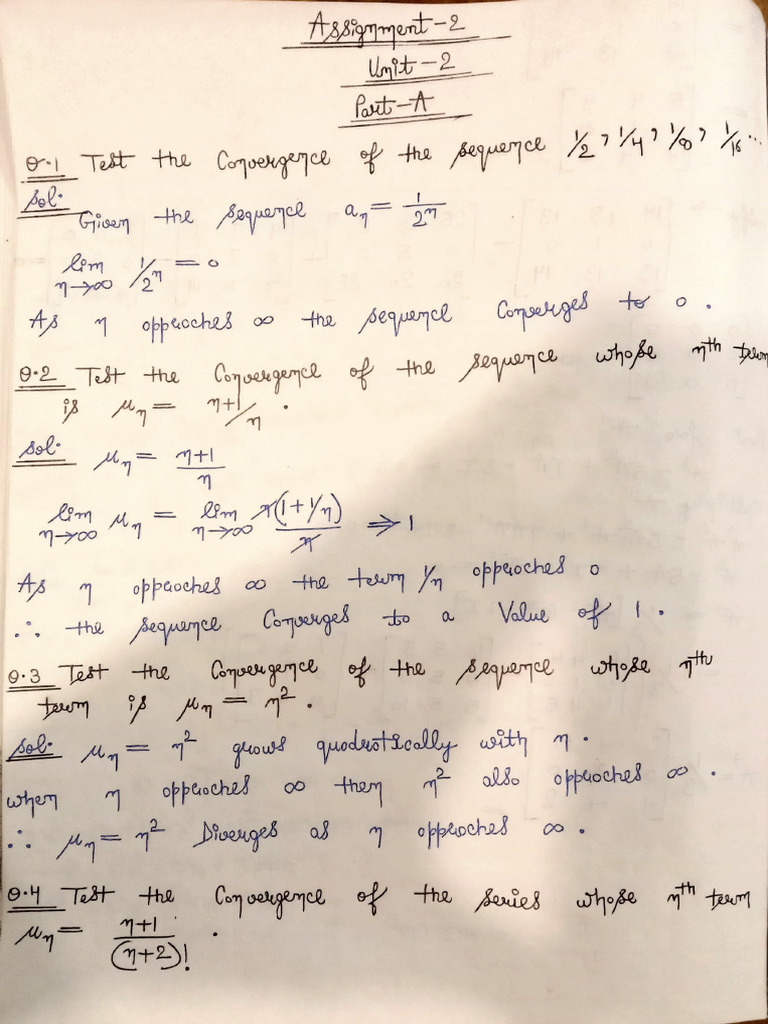 Assignment-2
Unit-2
Part-A
Q.1 Test the Convergence of the sequence 1/2, 1/4, 1/8, 1/16 ...
Sol. Given the sequence aₙ = 1/2ⁿ
lim n→∞ 1/2ⁿ = 0
As n approches ∞ the sequence Converges to 0.
Q.2 Test the Convergence of the sequence whose nth term
is μₙ = n+1/n.
Sol. μₙ = n+1/n
lim n→∞ μₙ = lim n→∞ n(1+1/n)/n ⇒ 1
As n approches ∞ the term 1/n approches 0
∴ the sequence Converges to a Value of 1.
Q.3 Test the Convergence of the sequence whose nth
term is μₙ = n².
Sol. μₙ = n² grows quadratically with n.
when n approches ∞ then n² also approches ∞.
∴ μₙ = n² Diverges as n approches ∞.
Q.4 Test the Convergence of the series whose nth term
μₙ = n+1/(n+2)!.